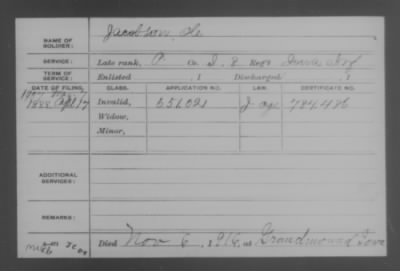 NAME OF SOLDIER: Jacobson, Ole
SERVICE: Late rank, P Co. I. 8 Reg't Iowa Inf
TERM OF SERVICE: Enlisted , 1 Discharged , 1
DATE OF FILING. CLASS. APPLICATION NO. LAW. CERTIFICATE NO.
1888 Sept 17 Invalid, 784486
Widow,
Minor,
ADDITIONAL SERVICES:
REMARKS:
Died Nov 6, 1916, at Grandmound Iowa